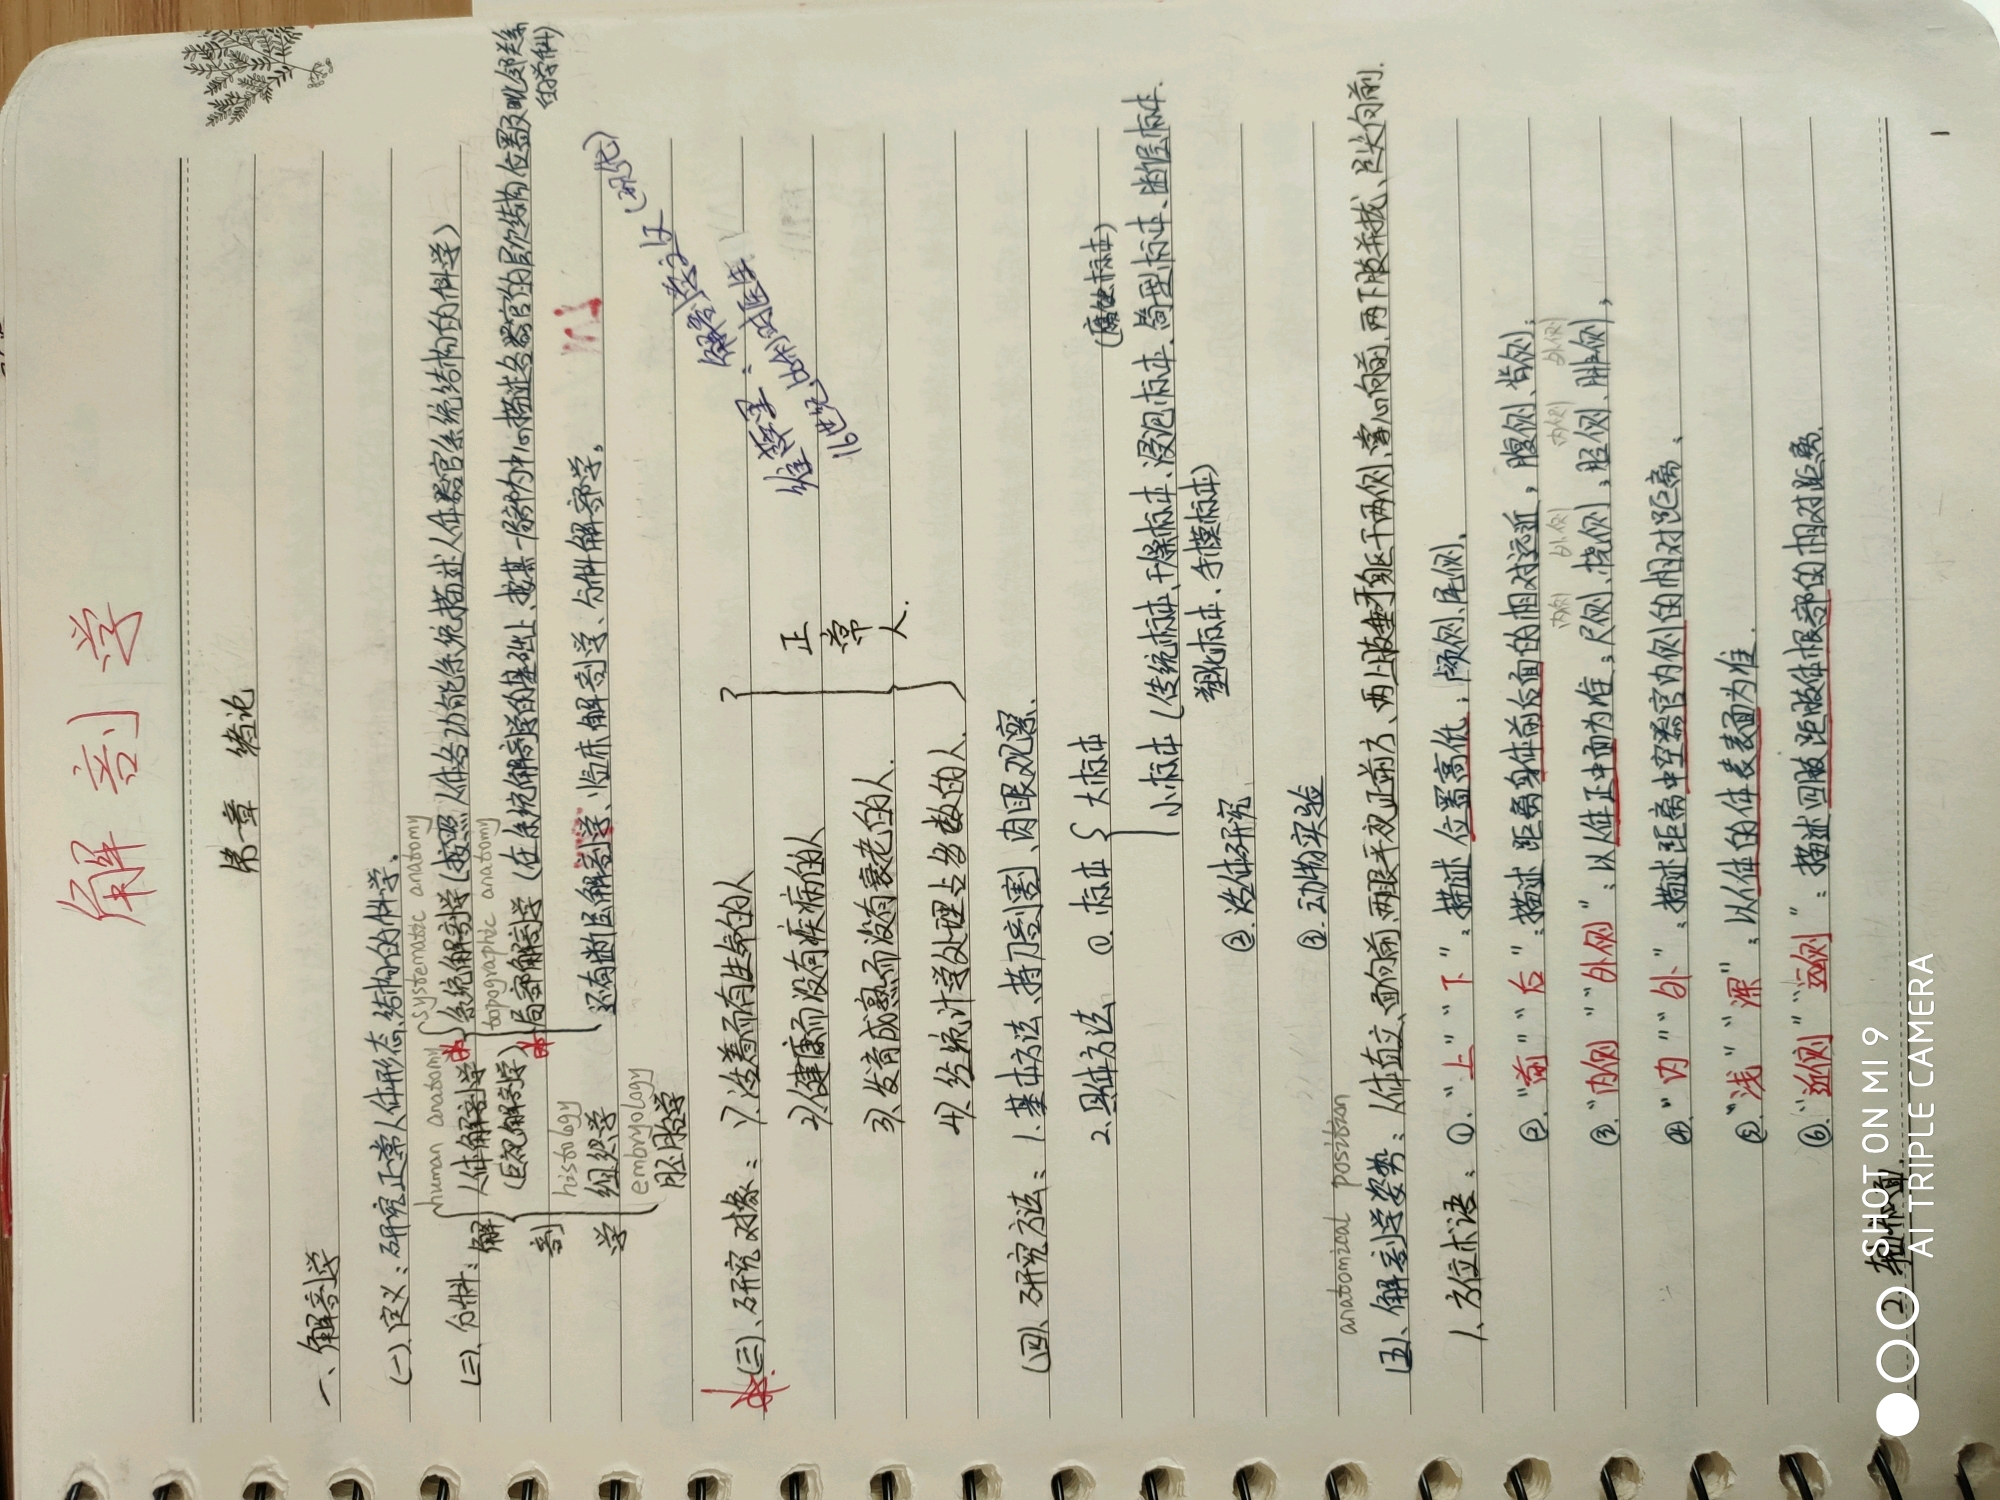 解剖学
第一章 绪论
一、解剖学
(一)、定义：研究正常人体形态结构的科学。
human anatomy
systematic anatomy
(二)、分科：
解剖学
人体解剖学
(巨视解剖学)
系统解剖学(按照人体各功能系统描述人体器官系统结构的科学)
topographic anatomy
局部解剖学(在系统解剖学的基础上、按某一局部为中心描述各器官的层次结构位置及毗邻关系的学科)
还有断层解剖学、临床解剖学、分科解剖学。
histology
组织学
embryology
胚胎学
(三)、研究对象：
1)、活着而有生命的人
2)、健康而没有疾病的人
3)、发育成熟而没有衰老的人.
4)、经统计学处理占多数的人.
正常人.
维萨里：
16世纪
(现代)
(四)、研究方法：1.基本方法、持刀剖割、肉眼观察、
2.具体方法 ①.标本
大标本 (腐蚀标本)
小标本(传统标本、干燥标本、浸泡标本、筒型标本、断层标本.
塑化标本、手模标本)
②.活体研究、
③.动物实验
anatomical position
(五)、解剖学姿势：人体直立、面向前、两眼平视正前方、两上肢垂于躯干两侧、掌心向前、两下肢并拢、足尖向前.
1、方位术语：①."上""下"：描述位置高低；颅侧、尾侧、
②."前""后"：描述距离身体前后面的相对远近，腹侧、背侧；
内侧 外侧 内侧 外侧
③."内侧""外侧"：以人体正中面为准；尺侧、桡侧；胫侧、腓侧，
④."内""外"：描述距离中空器官内侧的相对距离、
⑤."浅""深"：以人体的体表表面为准.
⑥."近侧""远侧"：描述四肢距肢体根部的相对距离.
2
1
SHOT ON MI 9
AI TRIPLE CAMERA